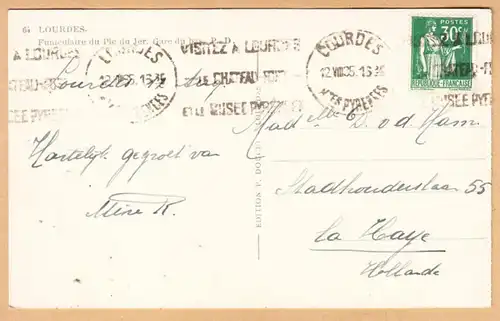 64 LOURDES.
Funiculaire du Pic du Jer. Gare du bas. P. D.
LOURDES
12 VIII 35. 16 35
Htes PYRENEES
VISITEZ A LOURDES
LE CHATEAU-FORT
ET LE MUSEE PYRENEEN
LOURDES
12 VIII 35. 16 35
Htes PYRENEES
POSTES
30c
REPUBLIQUE-FRANÇAISE
Lourdes 12 Aug
Hartelijk gegroet van
Mine R.
EDITION P. DOUCET
Madelle D. v. d. Ham.
Stadhouderslaan 55
La Haye
Hollande